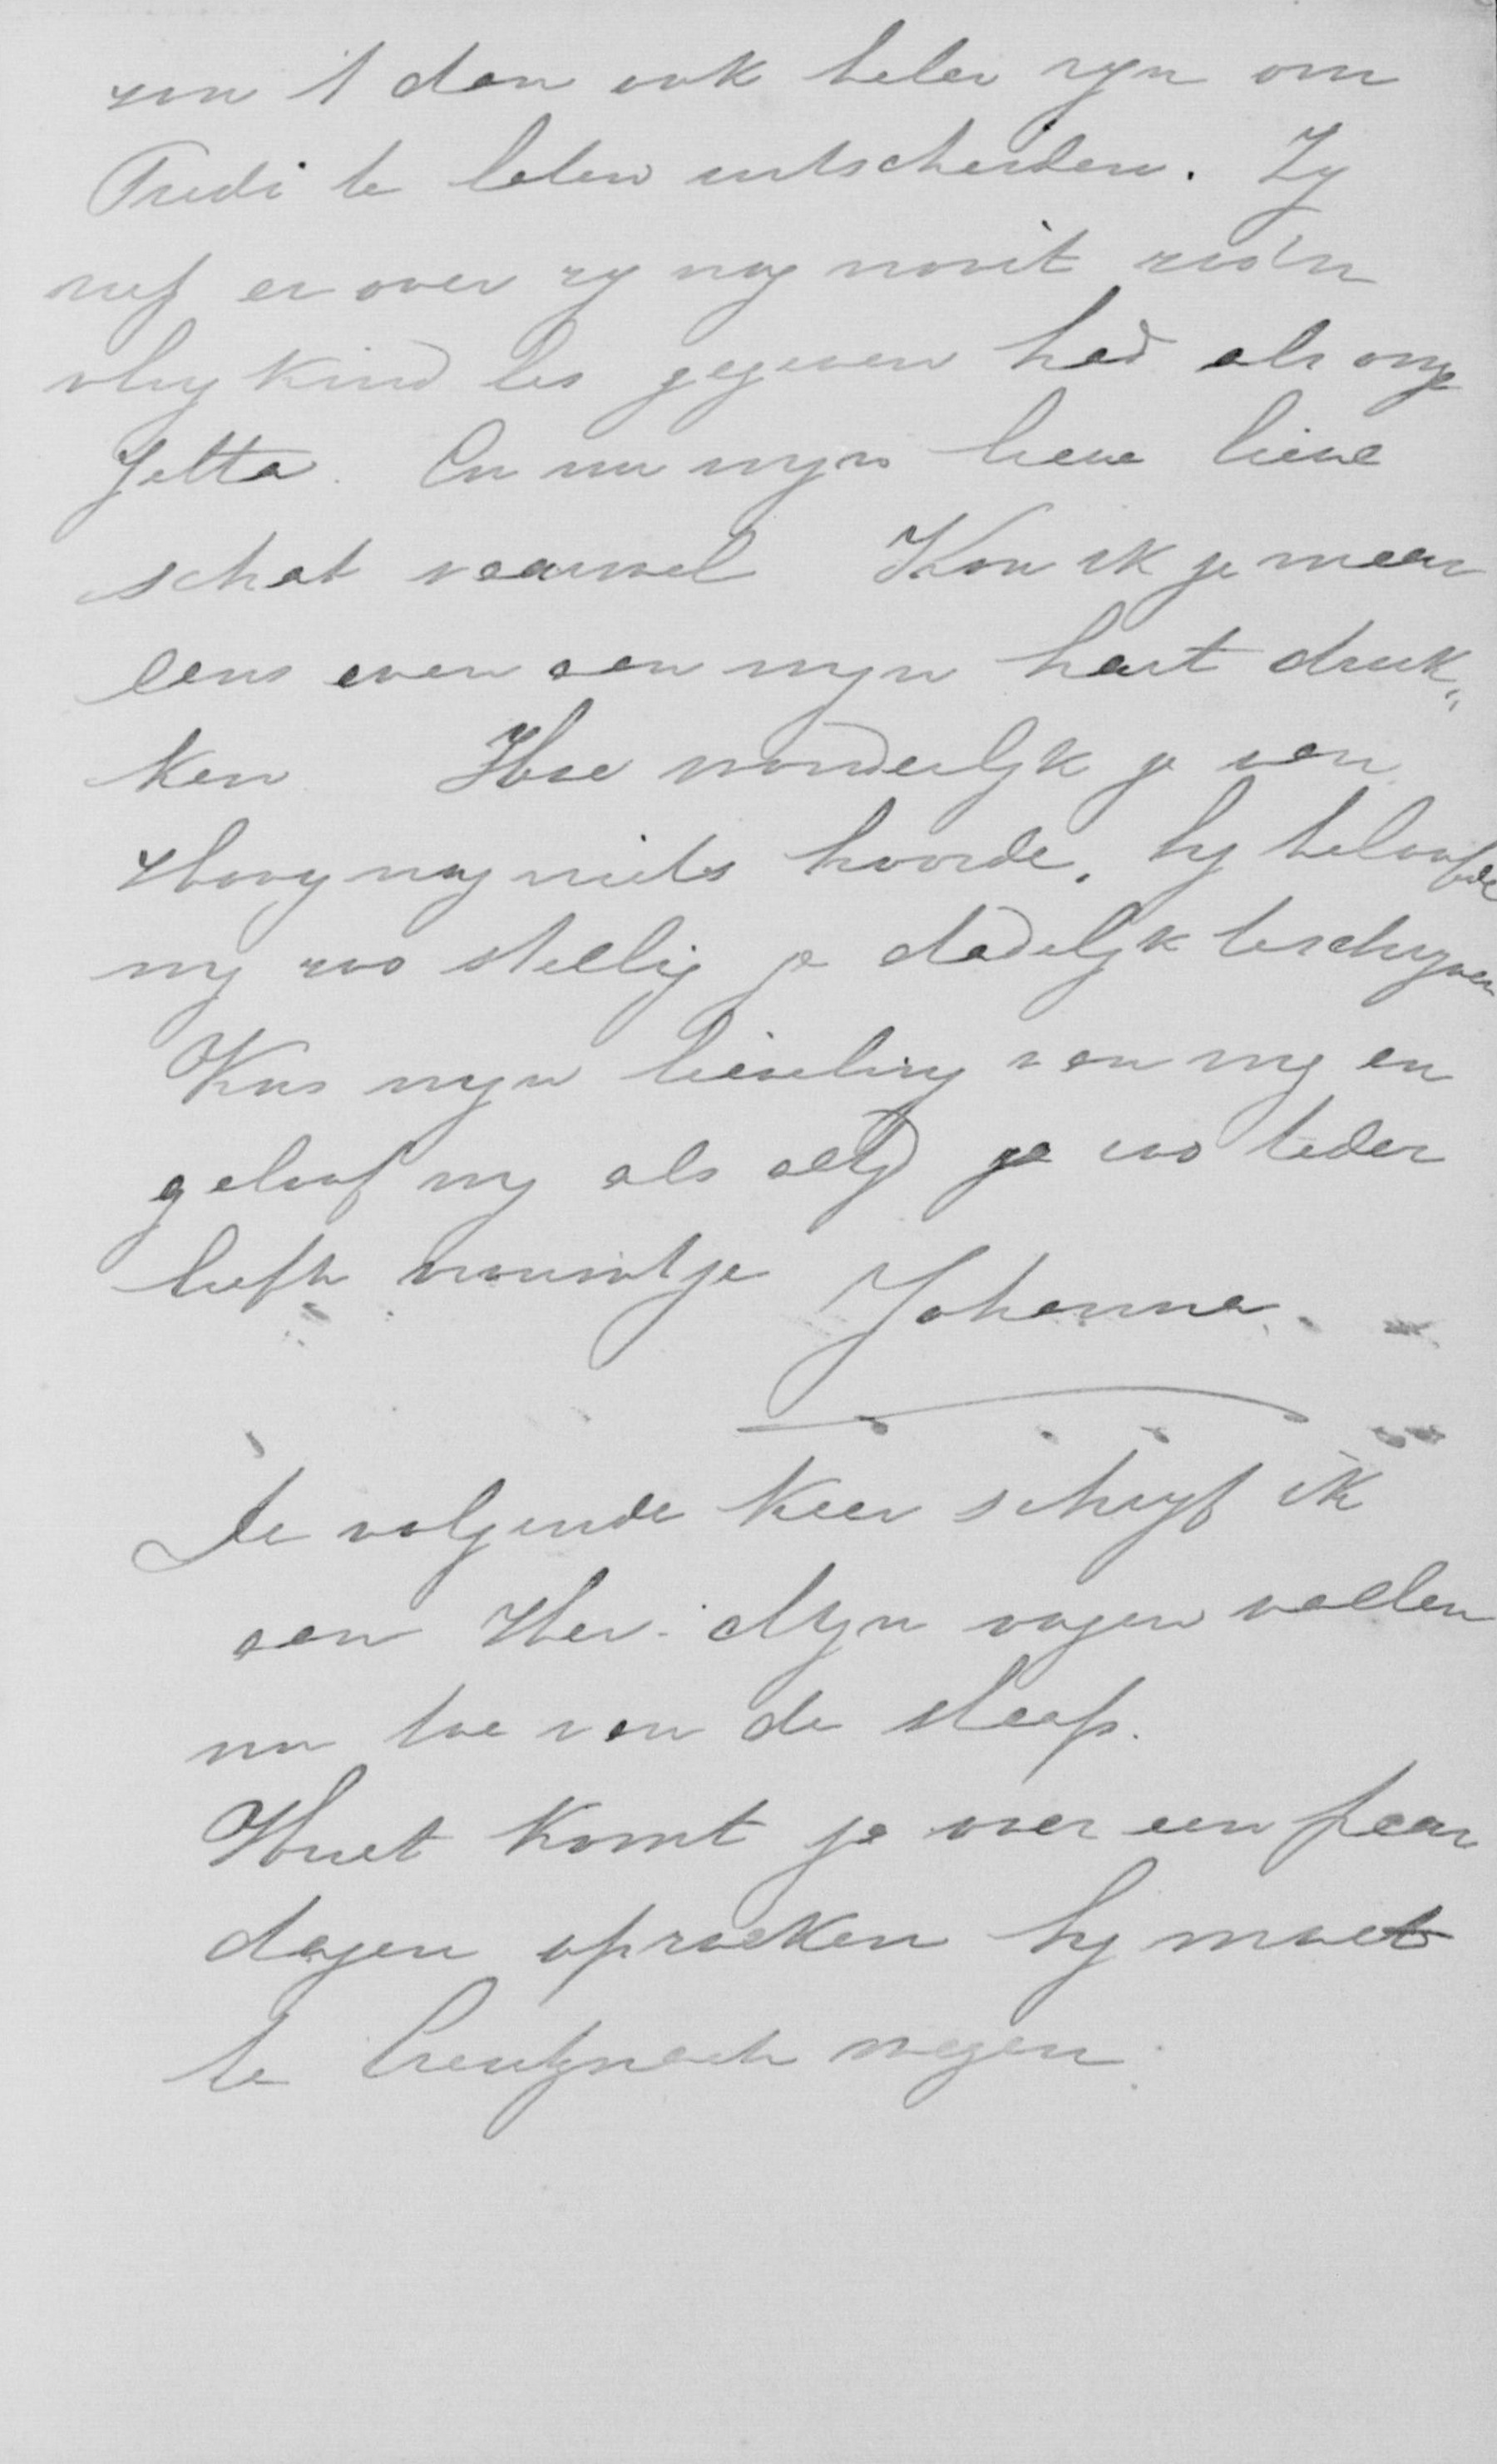 zou 't dan ook beter zyn om
Tredi te laten uitscheiden. Zy
rief er over zy nog nooit zoo'n
vlug kind les gegeven had als onze
Jetta. En nu myn lieve lieve
schat vaarwel Kon ik je maar
eens even aan myn hart druk„
ken Hoe wonderlyk je van
Hoog nog niets hoorde. hy beloofde
my zoo stellig je dadelyk te schryven
Kus myn lieveling van my en
geloof my als altyd je zoo teder
liefh vrouwtje Johanna.
De volgende keer schryf ik
aan Her. Myn oogen vallen
nu toe van de slaap.
Huet komt je over een paar
dagen opzoeken hy moet
te Creutznach wezen.